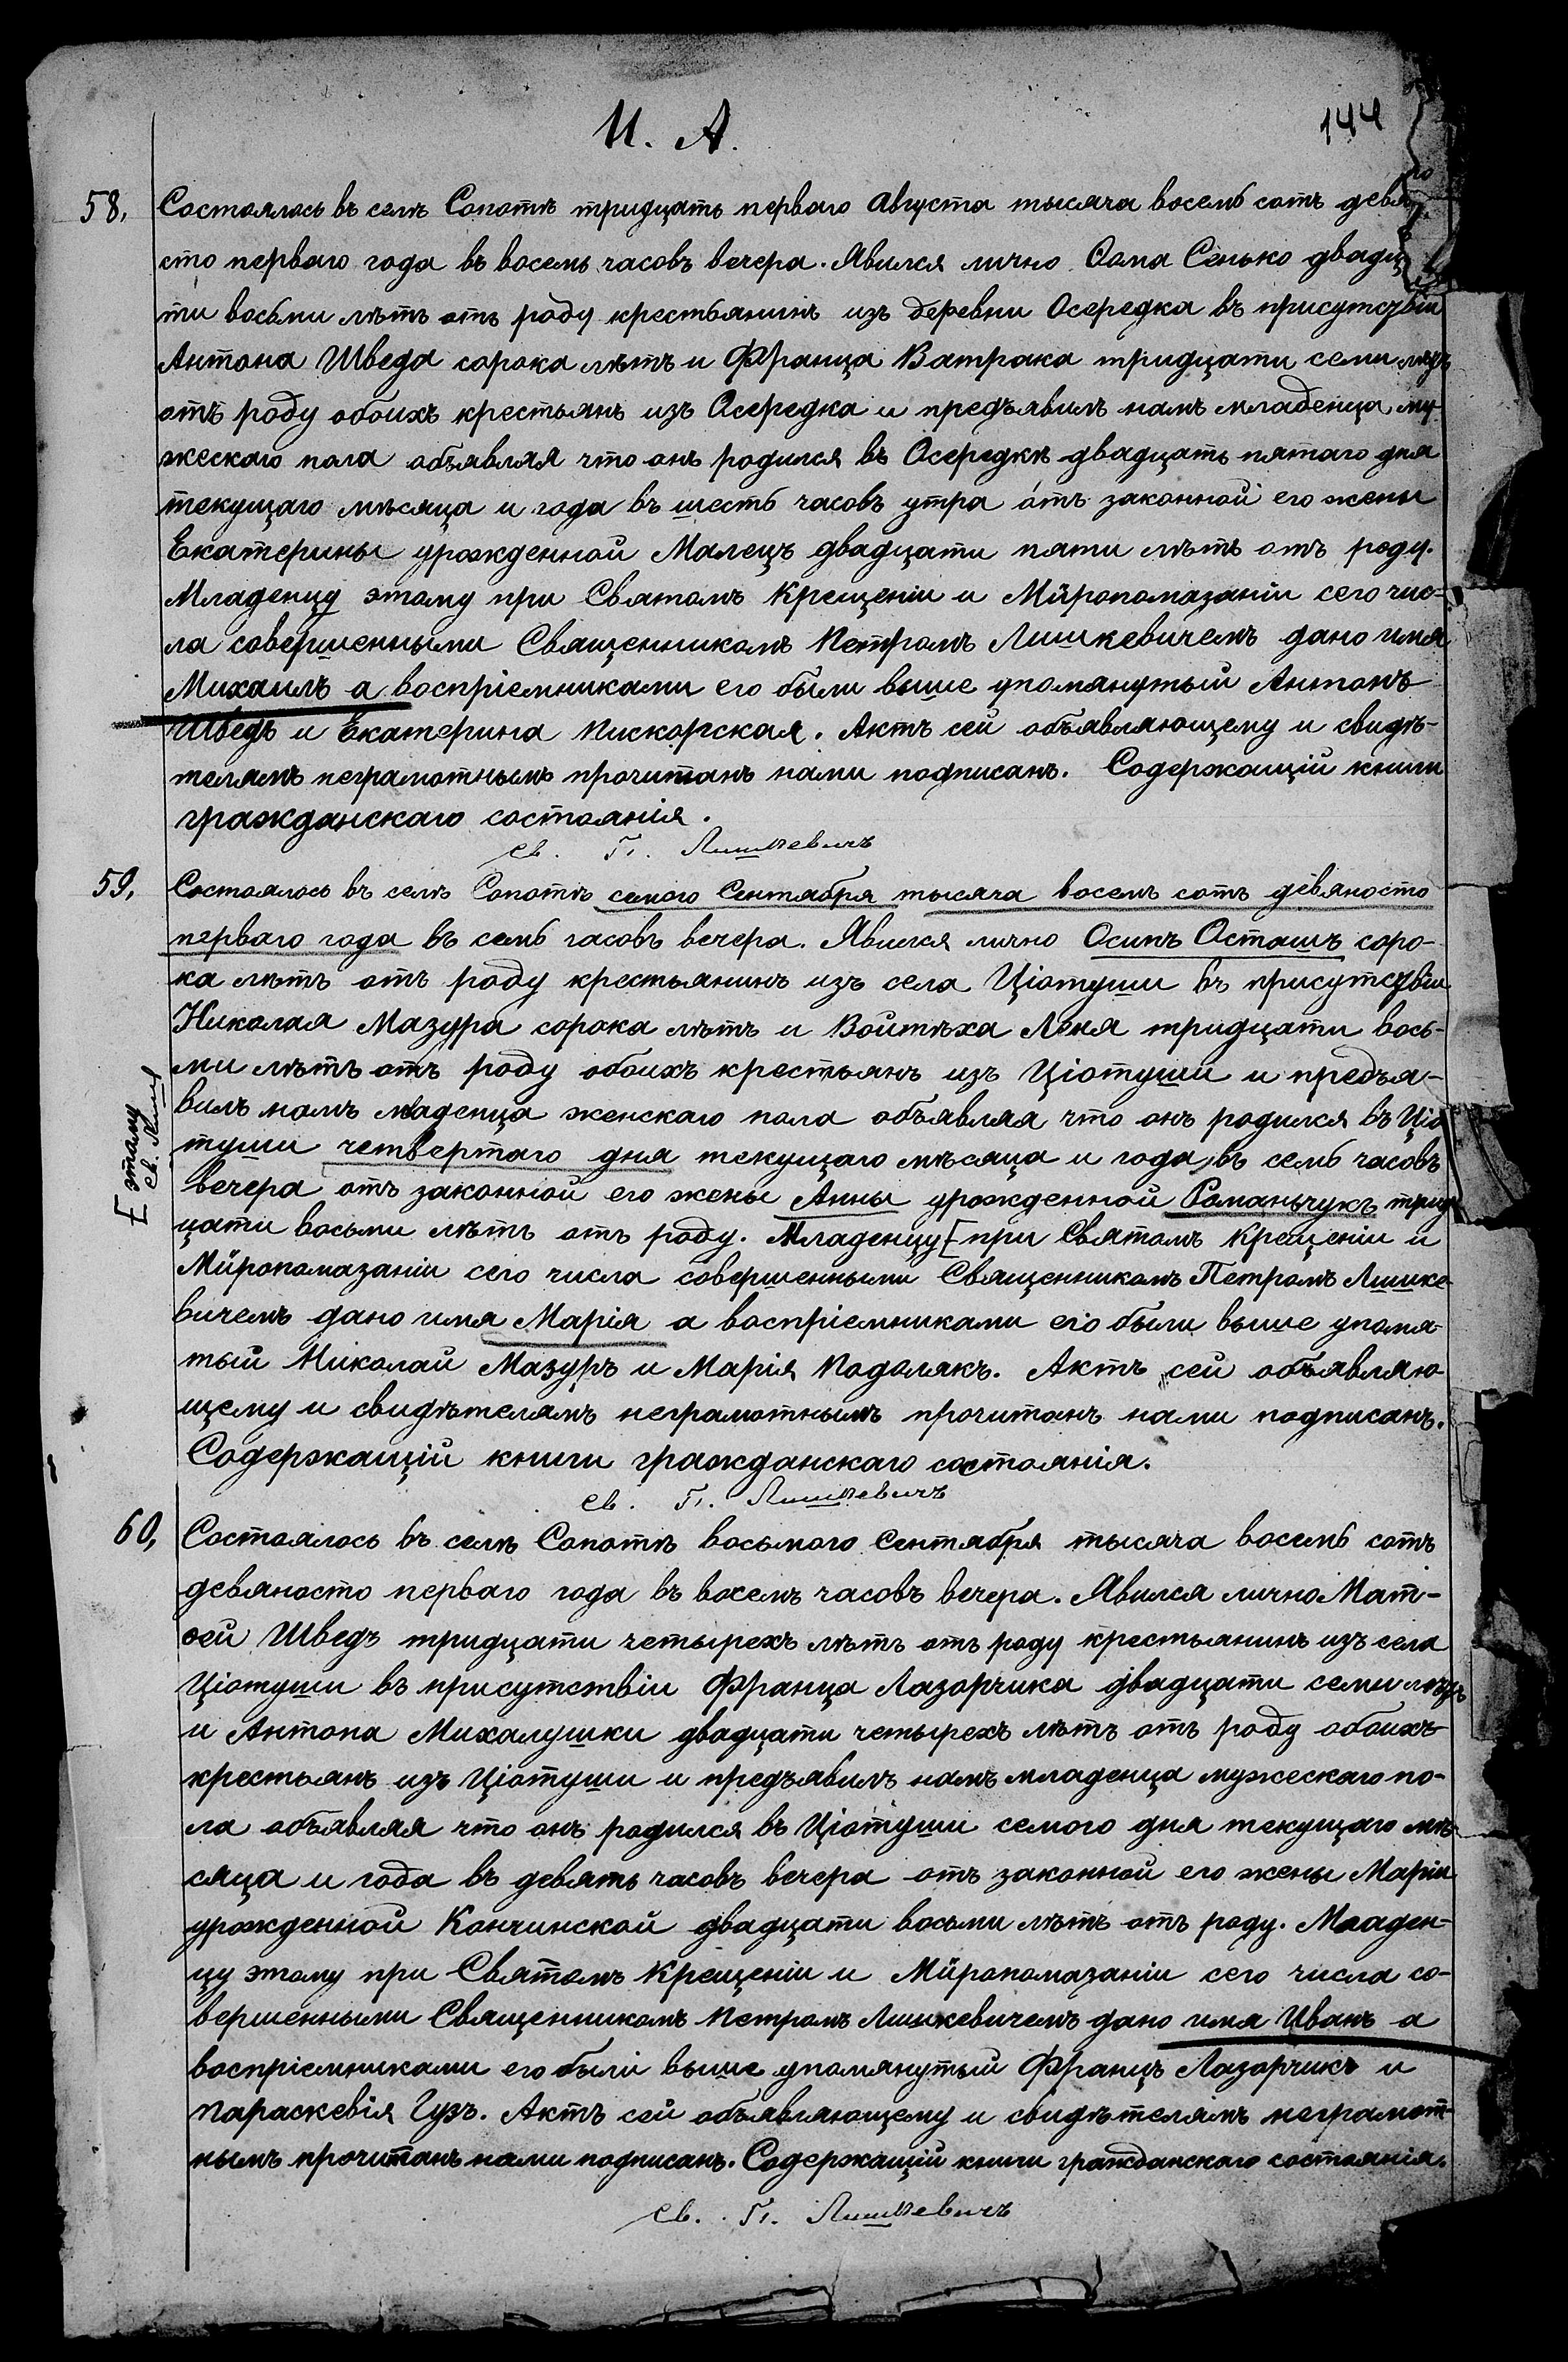 И. А.
144
58, Состоялось въ селѣ Сопотѣ тридцать перваго Августа тысяча восемь сотъ девяно-
сто перваго года въ восемь часовъ вечера. Явился лично Ѳома Сенько двадца-
ти восьми лѣтъ отъ роду крестьянинъ изъ деревни Осередка въ присутствіи
Антона Шведа сорока лѣтъ и Франца Ватрака тридцати семи лѣтъ
отъ роду обоихъ крестьянъ изъ Осередка и предъявилъ намъ младенца му-
жескаго пола объявляя что онъ родился въ Осередкѣ двадцать пятаго дня
текущаго мѣсяца и года въ шесть часовъ утра отъ законной его жены
Екатерины урожденной Малецъ двадцати пяти лѣтъ отъ роду.
Младенцу этому при Святомъ Крещеніи и Мѵропомазаніи сего чис-
ла совершенными Священникомъ Петромъ Лишкевичемъ дано имя
Михаилъ а воспріемниками его были выше упомянутый Антонъ
Шведъ и Екатерина Пискорская. Актъ сей объявляющему и свидѣ-
телямъ неграмотнымъ прочитанъ нами подписанъ. Содержащій книги
гражданскаго состоянія.
Св. П. Лишкевичъ
59, Состоялось въ селѣ Сопотѣ семого Сентября тысяча восемъ сотъ девяносто
перваго года въ семь часовъ вечера. Явился лично Осипъ Осташъ соро-
ка лѣтъ отъ роду крестьянинъ изъ села Ціотуши въ присутствіи
Николая Мазура сорока лѣтъ и Войтѣха Леня тридцати вось-
ми лѣтъ отъ роду обоихъ крестьянъ изъ Ціотуши и предъя-
вилъ намъ младенца женскаго пола объявляя что онъ родился въ Ціо
туши четвертаго дня текущаго мѣсяца и года въ семь часовъ
вечера отъ законной его жены Анны урожденной Романьчукъ трид
цати восьми лѣтъ отъ роду. Младенцу [ при Святомъ Крещеніи и
Мѵропомазаніи сего числа совершенными Священникомъ Петромъ Лишке-
вичемъ дано имя Марія а воспріемниками его были выше упомя-
тый Николай Мазуръ и Марія Подолякъ. Актъ сей объявляю-
щему и свидѣтелямъ неграмотнымъ прочитанъ нами подписанъ.
Содержащій книги гражданскаго состоянія.
Св. П. Лишкевичъ
[ этому
св. Лишк
60, Состоялось въ селѣ Сопотѣ восьмого Сентября тысяча восемь сотъ
девяносто перваго года въ восемъ часовъ вечера. Явился лично Мат-
ѳей Шведъ тридцати четырехъ лѣтъ отъ роду крестьянинъ изъ села
Ціотуши въ присутствіи Франца Лазорчика двадцати семи лѣтъ
и Антона Михалушки двадцати четырехъ лѣтъ отъ роду обоихъ
крестьянъ изъ Ціотуши и предъявилъ намъ младенца мужескаго по-
ла объявляя что онъ родился въ Ціотуши семого дня текущаго мѣ
сяца и года въ девять часовъ вечера отъ законной его жены Маріи
урожденной Кончинской двадцати восьми лѣтъ отъ роду. Младен-
цу этому при Святомъ Крещеніи и Мѵропомазаніи сего числа со-
вершенными Священникомъ Петромъ Лишкевичемъ дано имя Иванъ а
воспріемниками его были выше упомянутый Францъ Лазорчикъ и
Параскевія Гузъ. Актъ сей объявляющему и свидѣтелямъ неграмот-
нымъ прочитанъ нами подписанъ. Содержащій книги гражданскаго состоянія.
Св. П. Лишкевичъ